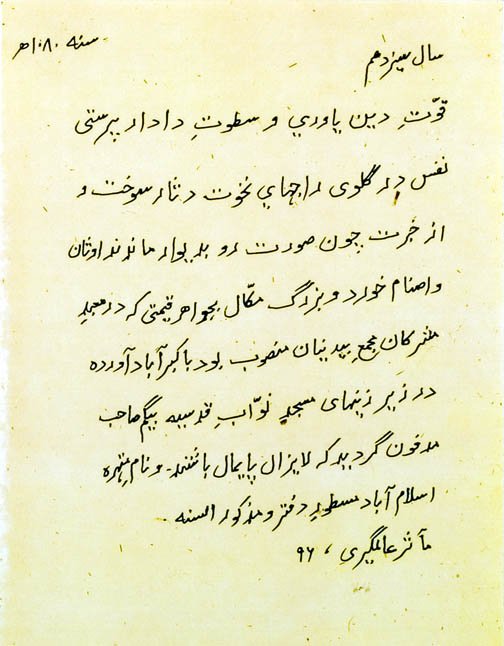 سنه ۱۰۸۰ھ
سال سیزدهم
قوّتِ دین یاوری و سطوتِ دادار پرستی
نفس در گلوی راجهای نخوت دثار سوخت و
از حیرت چون صورت رو بدیوار ماندند اوثان
و اصنام خورد و بزرگ مکّلل بجواهر قیمتی که در معبدِ
مشرکان مجمع بیدینان منصوب بود باکبرآباد آورده
در زیر زینهای مسجدِ نوّابِ قدسیه بیگم صاحب
مدفون گردید که لایزال پایمال باشند۔ و نام متهره
اسلام آباد مسطورِ دفتر و مذکور السنه۔
مآثر عالمگیری، ۹۶